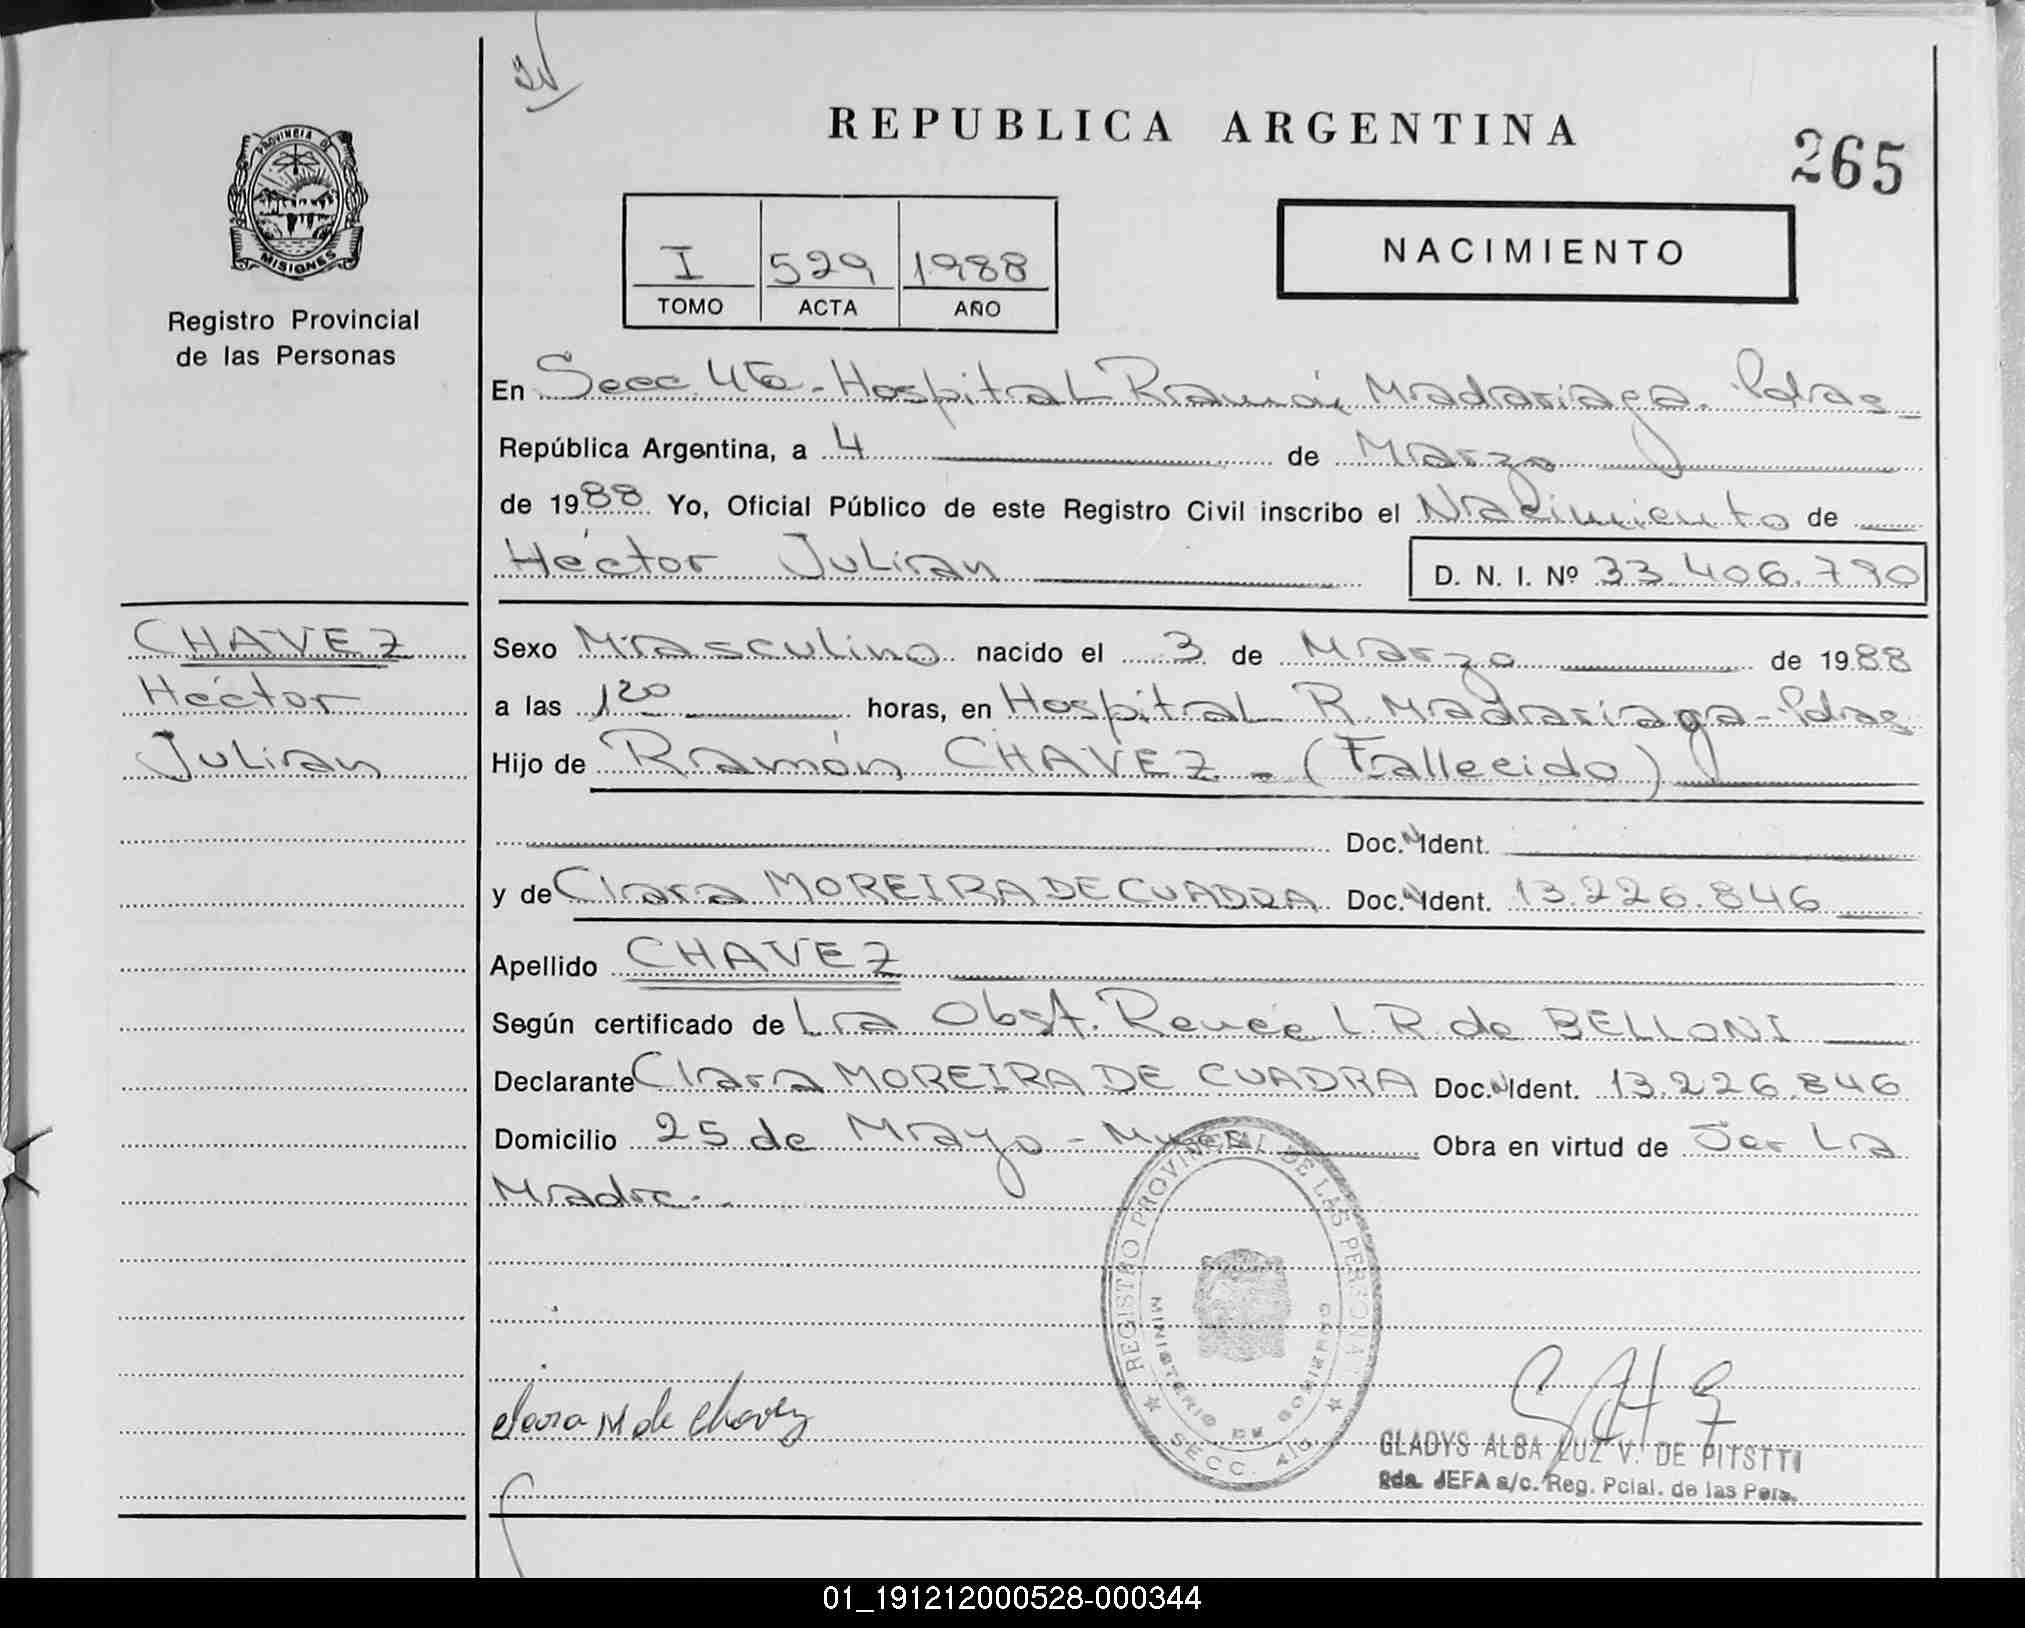 REPUBLICA ARGENTINA
265
PROVINCIA DE
MISIONES
Registro Provincial
de las Personas
I 529 1988
TOMO ACTA AÑO
NACIMIENTO
En Secc 4ta - Hospital Ramón Madariaga. Pdas -
República Argentina, a 4 de Marzo
de 1988 Yo, Oficial Público de este Registro Civil inscribo el Nacimiento de
Héctor Julian D. N. I. Nº 33.406.790
CHAVEZ
Héctor
Julian
Sexo Masculino nacido el 3 de Marzo de 1988
a las 1 20 horas, en Hospital R. Madariaga - Pdas
Hijo de Ramón CHAVEZ - (Fallecido)
Doc. N Ident.
y de Clara MOREIRA DE CUADRA Doc. N Ident. 13.226.846
Apellido CHAVEZ
Según certificado de La Obst. Renée L. R. de BELLONI
Declarante Clara MOREIRA DE CUADRA Doc. N Ident. 13.226.846
Domicilio 25 de Mayo - Mnes Obra en virtud de Ser La
Madre.-
REGISTRO PROVINCIAL DE LAS PERSONAS
MINISTERIO DE GOBIERNO
SECC. 4ta
Clara M de Chavez
GLADYS ALBA LUZ V. DE PITSTTI
2da. JEFA a/c. Reg. Pcial. de las Pers.
01_191212000528-000344